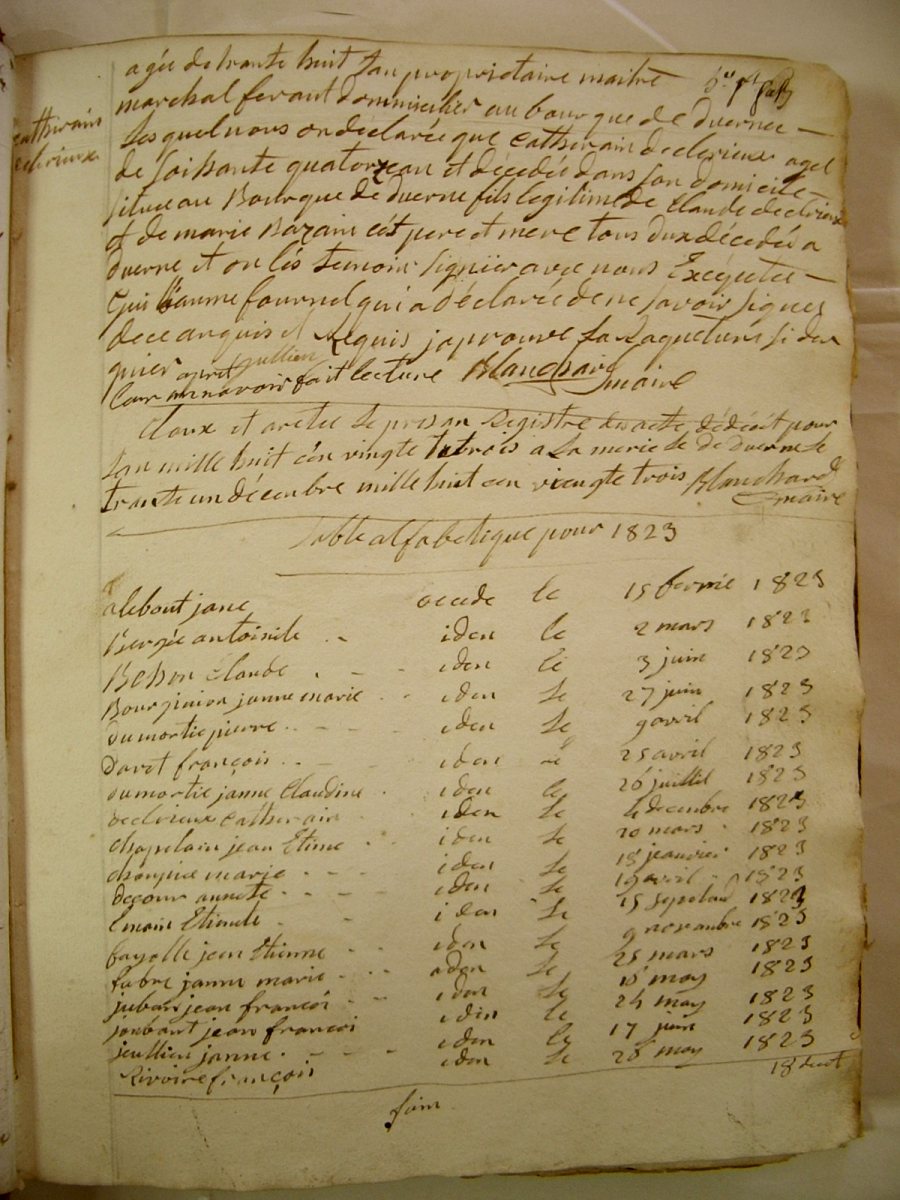 agée de trante huit san propriétaire maitre
marchal ferant dommicilier au bourgue de duerne —
cathirain
declirieux
les quel nous on déclarée que Catherain declerieux agé
de soissante quatorze an et décédée dans son domicile —
situe au Bourgue de duerne fils legitime de Claude declirieux
et de marie Bazain cest pere et mere tous dux décédée a
duerne et on lés temoin signiier avec nous Exceptee —
Guillaume fournel qui a déclarée de ne savoir signer
de ce anquis et Requis japrouve
gullien
Leur an navoir fait lecture Blanchard
maire
Cloux et aretee le presan Registre des acte dédécét pour
lan mille huit cén vingte trois a la merie de duerne le
trante un décenbre mille huit cen viengte trois Blanchard
maire
table alfabetique pour 1823
alebout jane decede le 15 fevrie 1823
Bergée antoinile iden le 2 mars 1823
Besson Claude iden le 3 juin 1823
Bourginion janne marie iden le 27 juin 1823
dumortie pierre iden le 9 avril 1823
davet françois iden le 25 avril 1823
dumortie janne Claudine iden le 26 juillet 1823
declirieux Catherain iden le 4 decenbre 1823
chapelain jean Etime iden le 20 mars 1823
marie iden le 18 jeanvier 1823
decour annete iden le 19 avril 1823
Emain Etiende iden le 15 1823
fayolle jean Etienne iden le 9 novambre 1823
fabre janne marie iden le 25 mars 1823
juban jean francoi iden le 18 may 1823
joubant jean francoi iden le 24 may 1823
jeullien janne iden le 17 juin 1823
Rivoire françois iden le 28 may 1823
18
fain